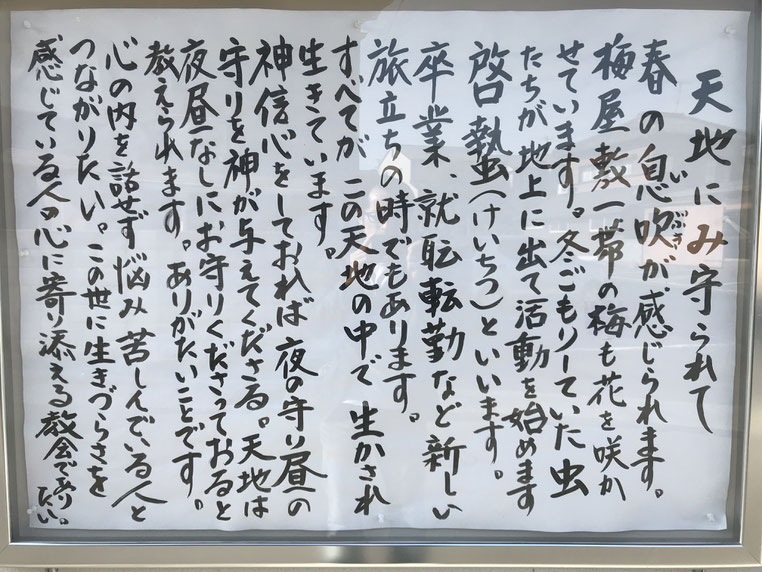 天地にみ守られて
春の息吹が、感じられます。
いぶき
梅屋敷一帯の梅も花を咲か
せています。冬ごもりしていた虫
たちが地上に出て活動を始めます
啓蟄(けいちつ)といいます。
卒業、就職転勤など新しい
旅立ちの時でもあります。
すべてが、この天地の中で生かされ
生きています。
神信心をしておれば夜の守り昼の
守りを神が与えてくださる。天地は
夜昼なしにお守りくださっておると
教えられます。ありがたいことです。
心の内を話せず悩み苦しんでいる人と
つながりたい。この世に生きづらさを
感じている人の心に寄り添える教会でありたい。